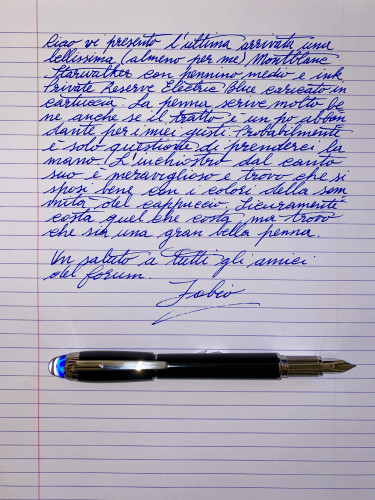 Ciao vi presento l'ultima arrivata una
bellissima (almeno per me) Montblanc
Starwalker con pennino medio e ink
Private Reserve Electric Blue caricato in
cartuccia. La penna scrive molto be
ne anche se il tratto è un po abbon
dante per i miei gusti. Probabilmente
è solo questione di prenderci la
mano. L'inchiostro dal canto
suo è meraviglioso e trovo che si
sposi bene con i colori della som
mità del cappuccio. Sicuramente
costa quel che costa ma trovo
che sia una gran bella penna.
Un saluto a tutti gli amici
del forum.
Fabio